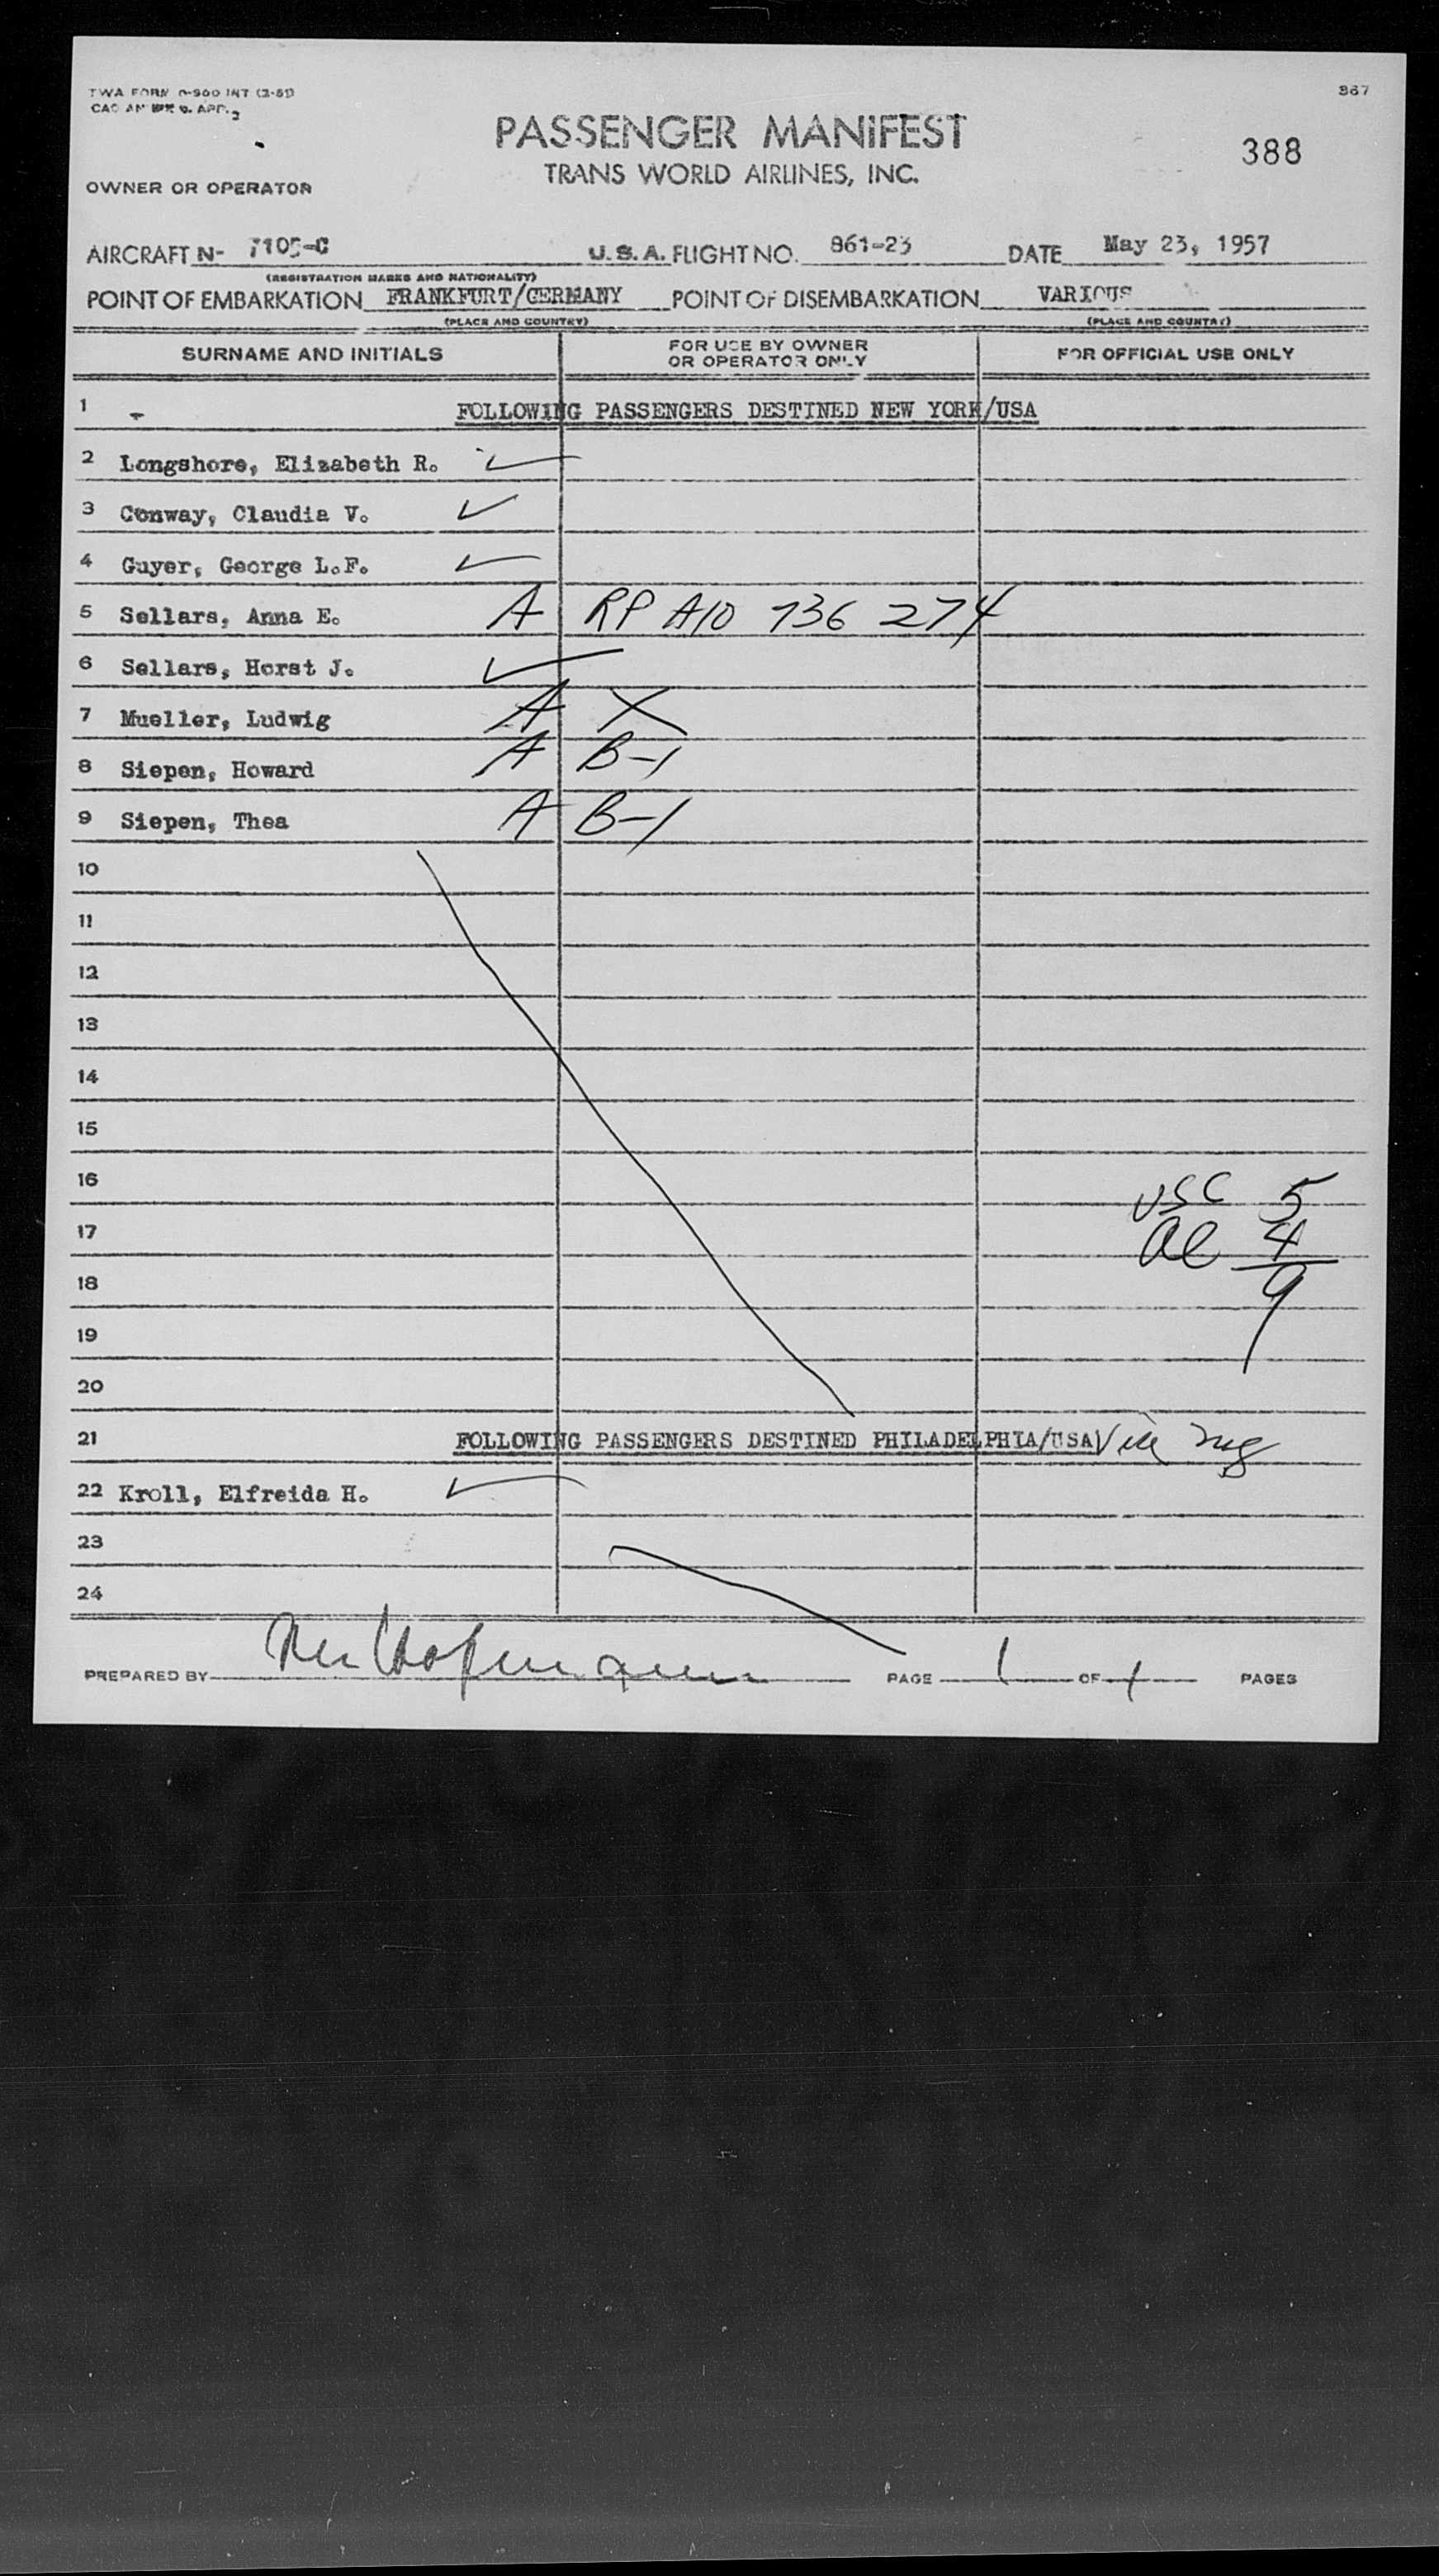 TWA FORM 0-900 INT (2-51)
867
CAO ANNEX 9. APP. 2
PASSENGER MANIFEST
388
TRANS WORLD AIRLINES, INC.
OWNER OR OPERATOR
AIRCRAFT N- 7105-C U.S.A. FLIGHT NO. 861-23 DATE May 23, 1957
(REGISTRATION MARKS AND NATIONALITY)
POINT OF EMBARKATION FRANKFURT/GERMANY POINT OF DISEMBARKATION VARIOUS
(PLACE AND COUNTRY) (PLACE AND COUNTRY)
SURNAME AND INITIALS FOR USE BY OWNER OR OPERATOR ONLY FOR OFFICIAL USE ONLY
1 - FOLLOWING PASSENGERS DESTINED NEW YORK/USA
2 Longshore, Elizabeth R. ✓
3 Conway, Claudia V. ✓
4 Guyer, George L.F. ✓
5 Sellars, Anna E. A RP A10 736 274
6 Sellars, Horst J. ✓
7 Mueller, Ludwig A X
8 Siepen, Howard A B-1
9 Siepen, Thea A B-1
10
11
12
13
14
15
16 USC 5
17 al 4
18 9
19
20
21 FOLLOWING PASSENGERS DESTINED PHILADELPHIA/USA Via
22 Kroll, Elfreida H. ✓
23
24
PREPARED BY PAGE 1 OF 1 PAGES